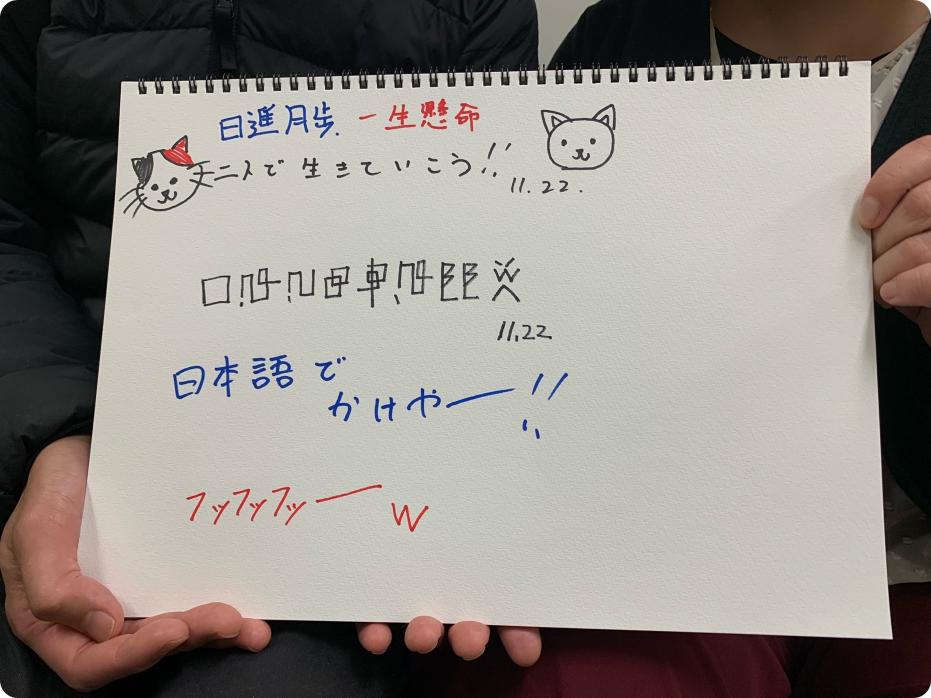 日進月歩、一生懸命
二人で生きていこう!!
11.22.
11.22
日本語で
かけやー!!
フッフッフッーw